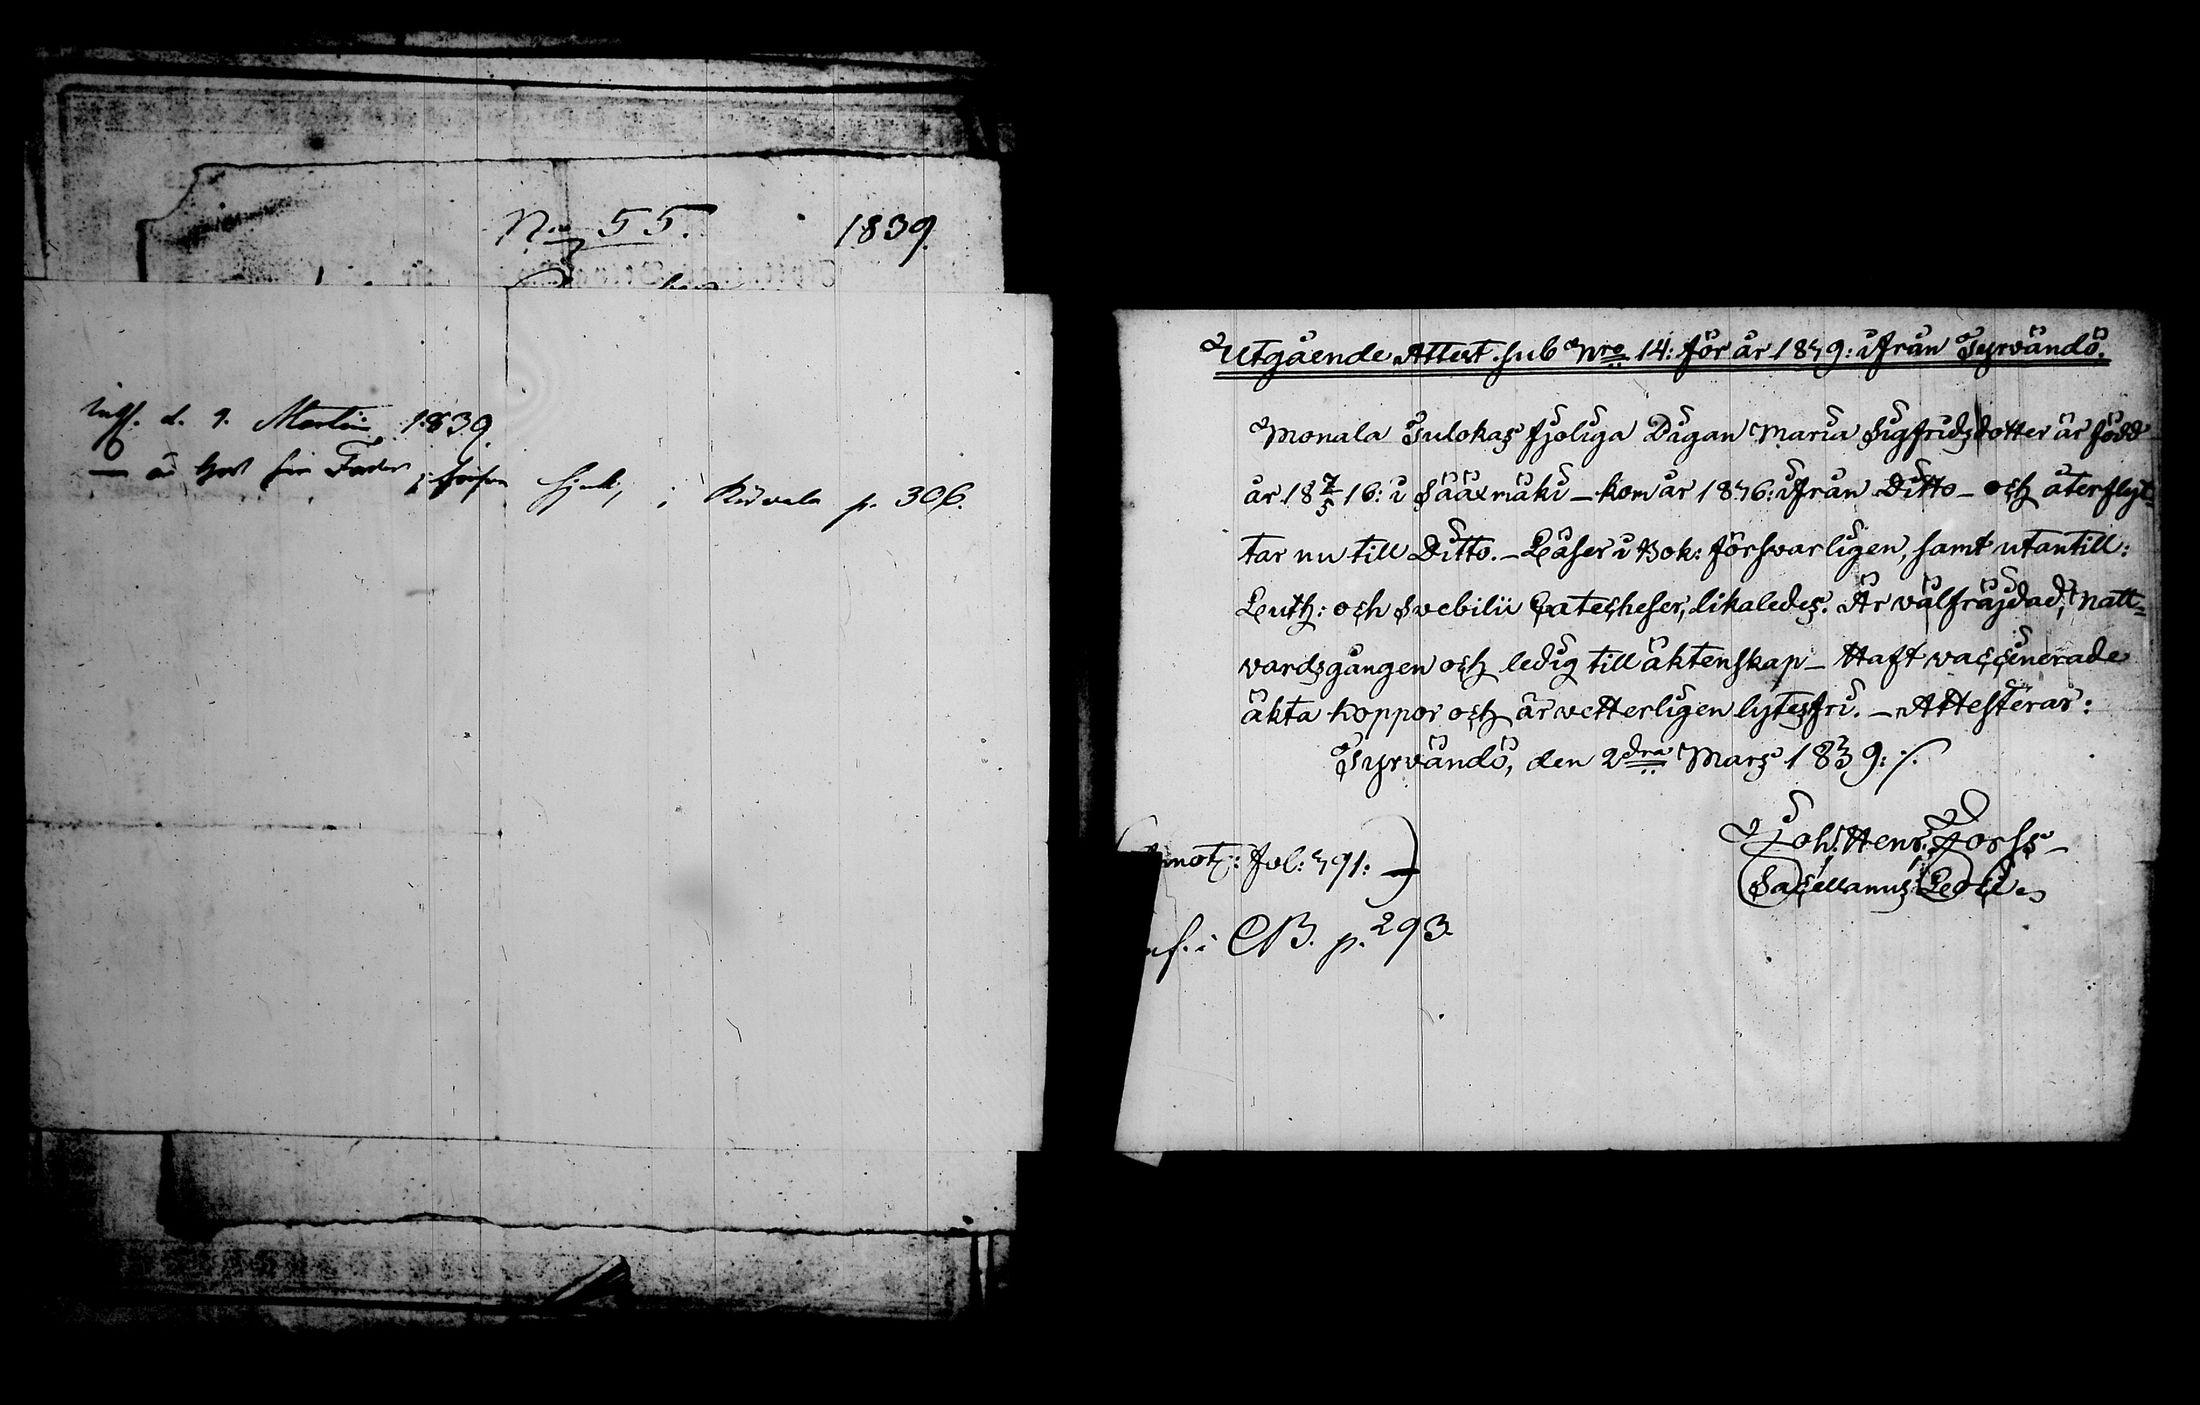 No 55. 1839.
d. 9. Martii 1839.
är hos sin Fader, i p. 306.
Utgående Attest sub Nro 14: för år 1839: ifrån Tyrvändö.
Monala Julokas fjoliga Pigan Maria Sigfridsdotter är född
år 18 7/5 16: i Sääxmäki – kom år 1836: ifrån Ditto – och återflyt-
tar nu till Ditto. – Läser i Bok: försvarligen, samt utantill:
Luth: och Svebilii Catecheser, likaledes. Är välfräjdad, Natt-
vardsgången och ledig till äktenskap – Haft vaccinerade
äkta koppor och är vetterligen lytesfri. – Attesterar:
Tyrvändö, den 2dra Mars 1839: ./.
Joh: Henr: Forss
Sacellanus Loci
not: fol: 391:
i CB. p. 293.